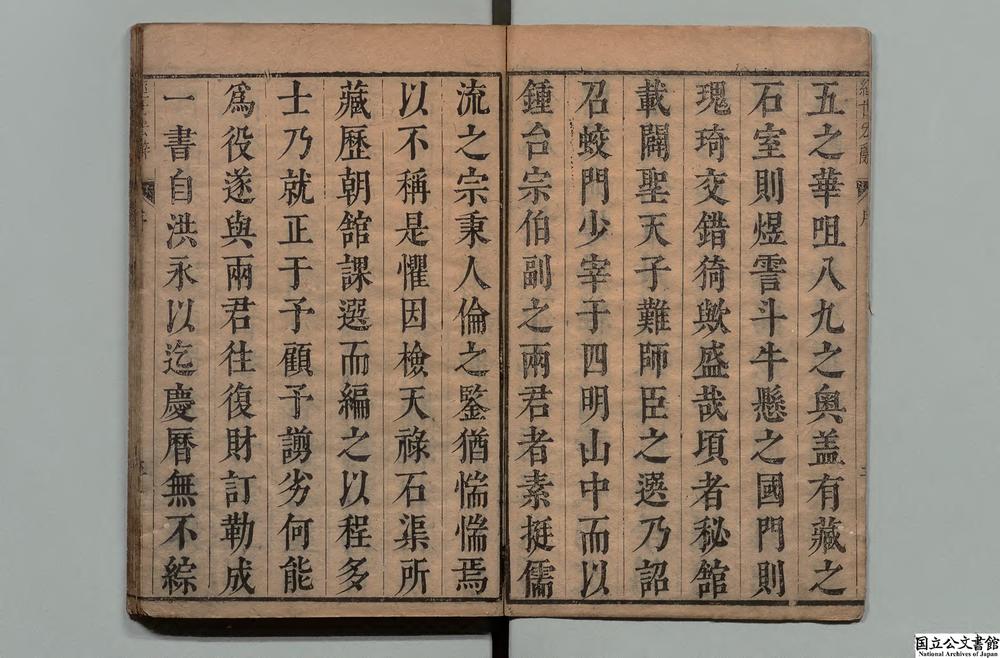 五之華咀八九之奧盖有藏之
石室則煜雲斗牛懸之國門則
瑰琦交錯猗歟盛哉頃者秘館
載闢聖天子難師臣之選乃詔
召蛟門少宰于四明山中而以
鍾台宗伯副之兩君者素挺儒
流之宗秉人倫之鑒猶惴惴焉
以不稱是懼因檢天祿石渠所
藏歷朝舘課選而編之以程多
士乃就正于予顧予謭劣何能
爲役遂與兩君往復財訂勒成
一書自洪永以迄慶曆無不綜
国立公文書館
National Archives of Japan